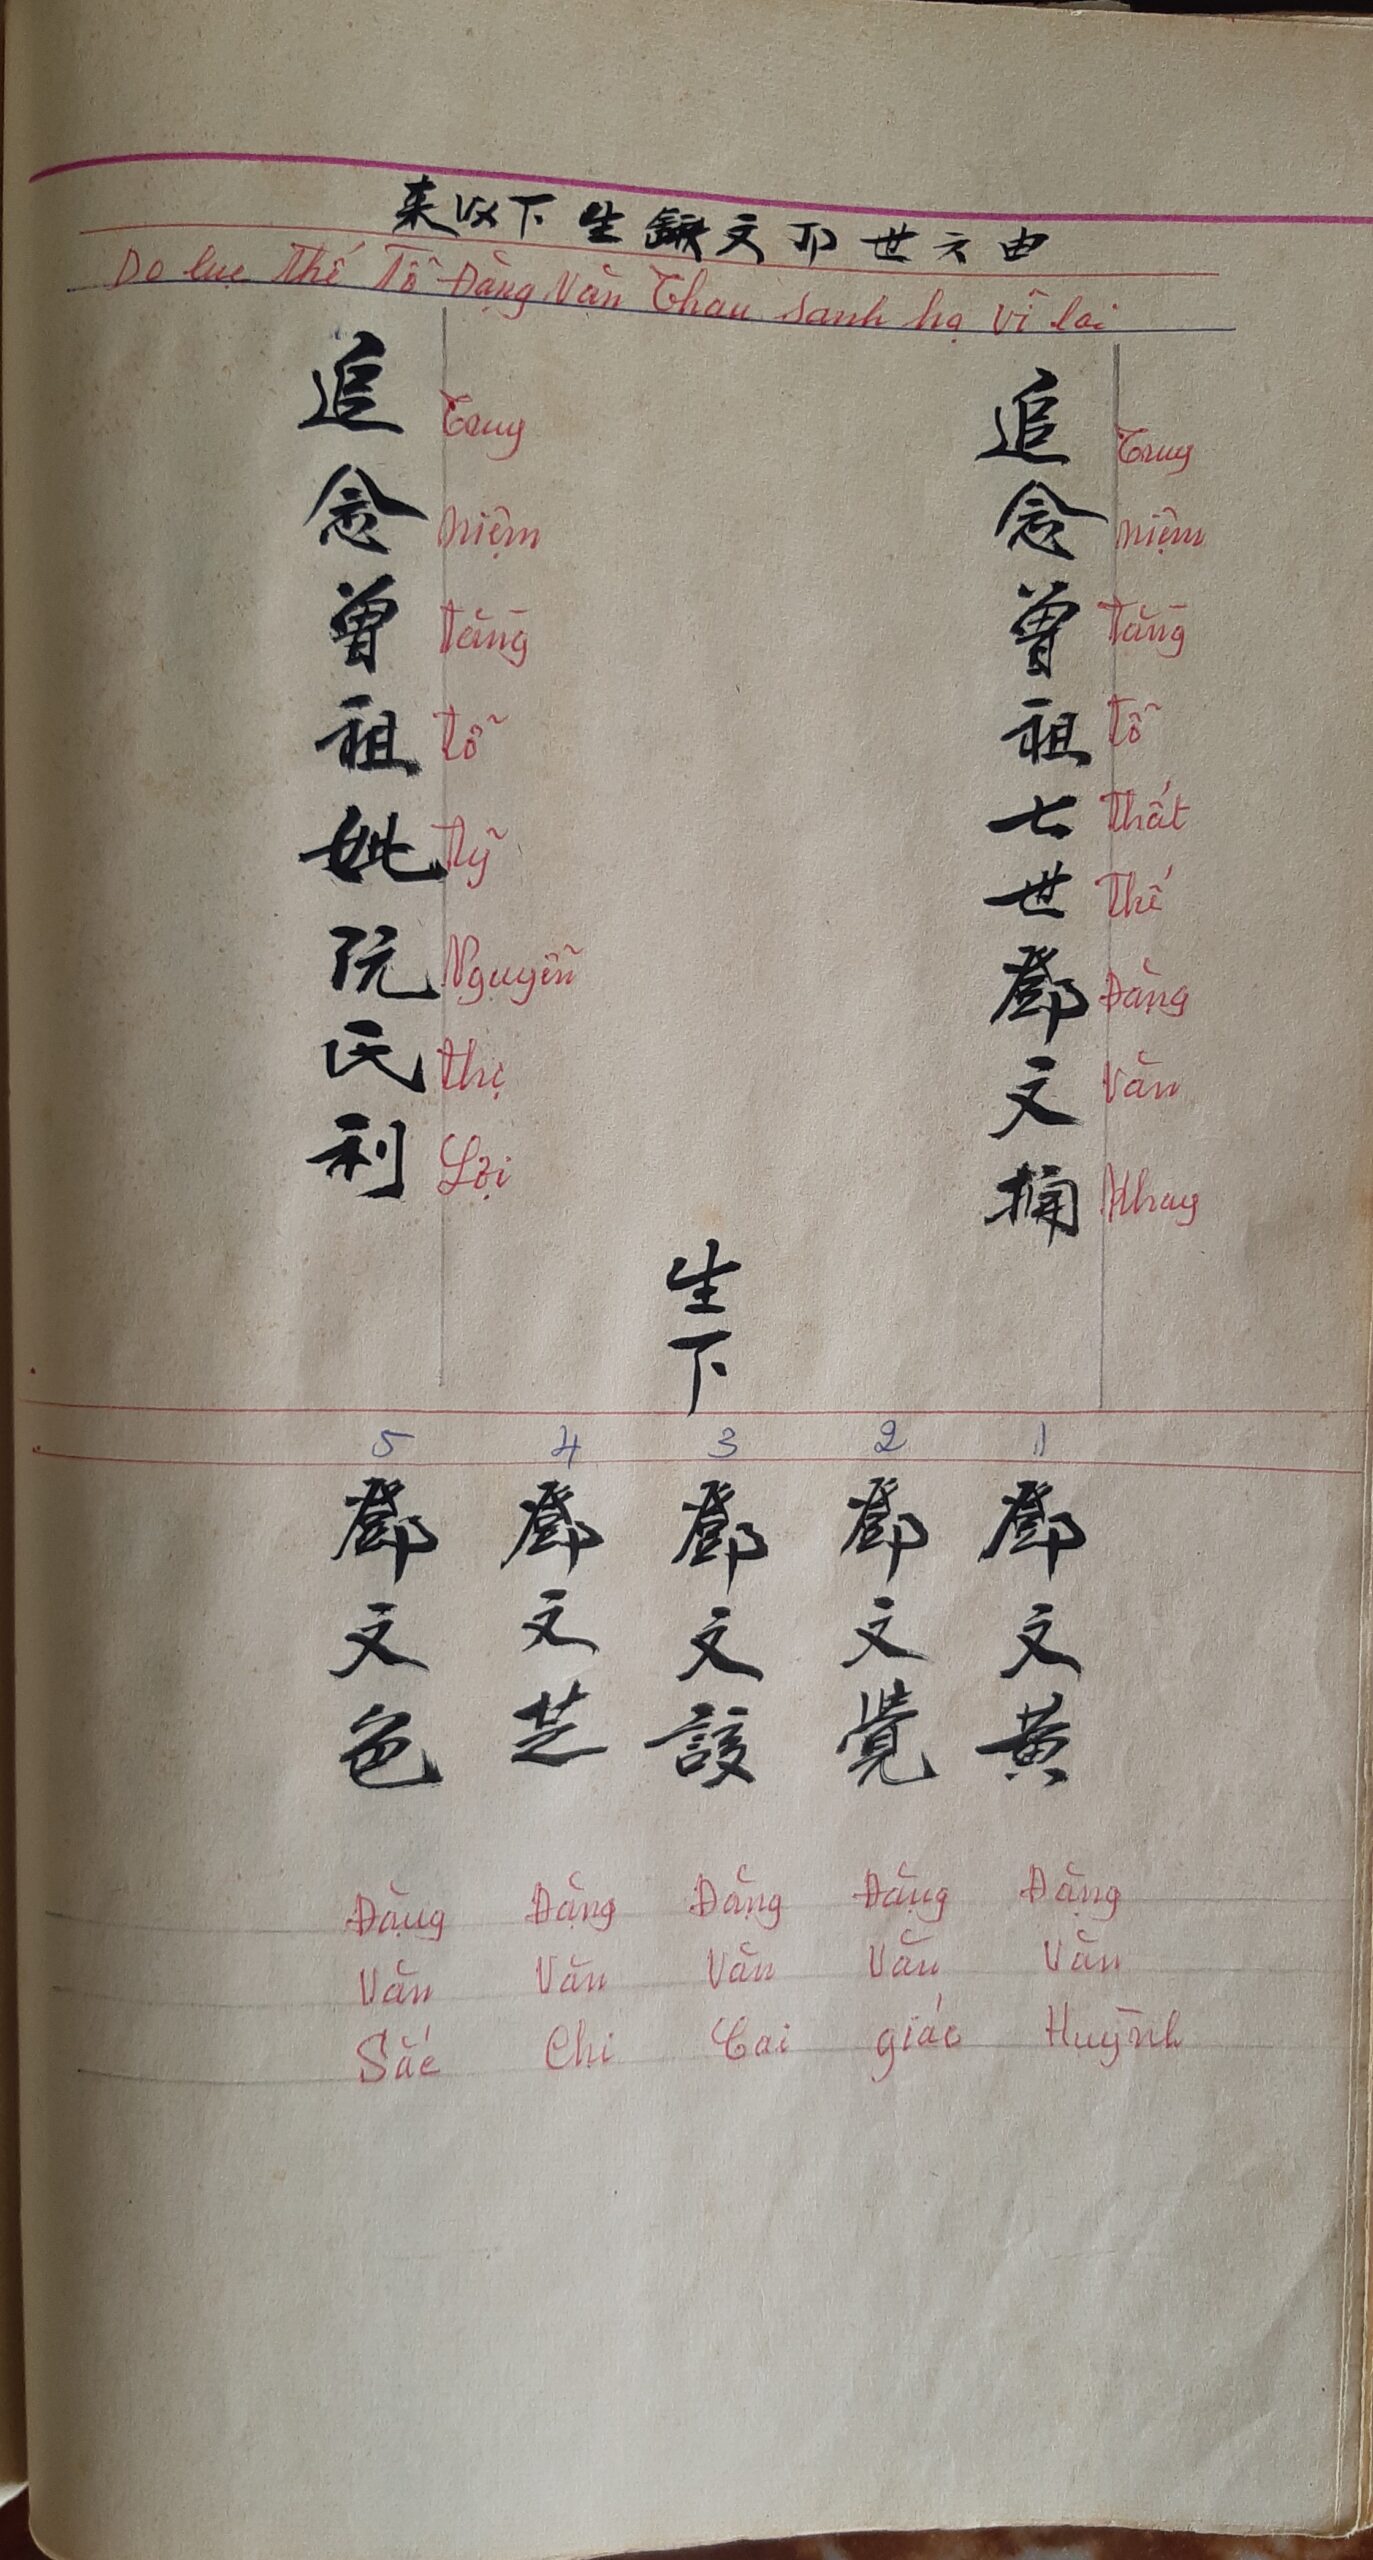 由六世卩文生下以来
Do lục Thế Tổ Đặng Văn Thau sanh hạ vĩ lai
追念曾祖七世鄧文
Truy niệm Tằng Tổ Thất Thế Đặng Văn Nhay
追念曾祖妣阮氏利
Truy niệm Tằng Tổ Tỹ Nguyễn thị Lợi
生下
1 2 3 4 5
鄧文黄
鄧文覺
鄧文該
鄧文芝
鄧文色
Đặng Văn Huỳnh
Đặng Văn giác
Đặng Văn Cai
Đặng Văn Chi
Đặng Văn Sắc